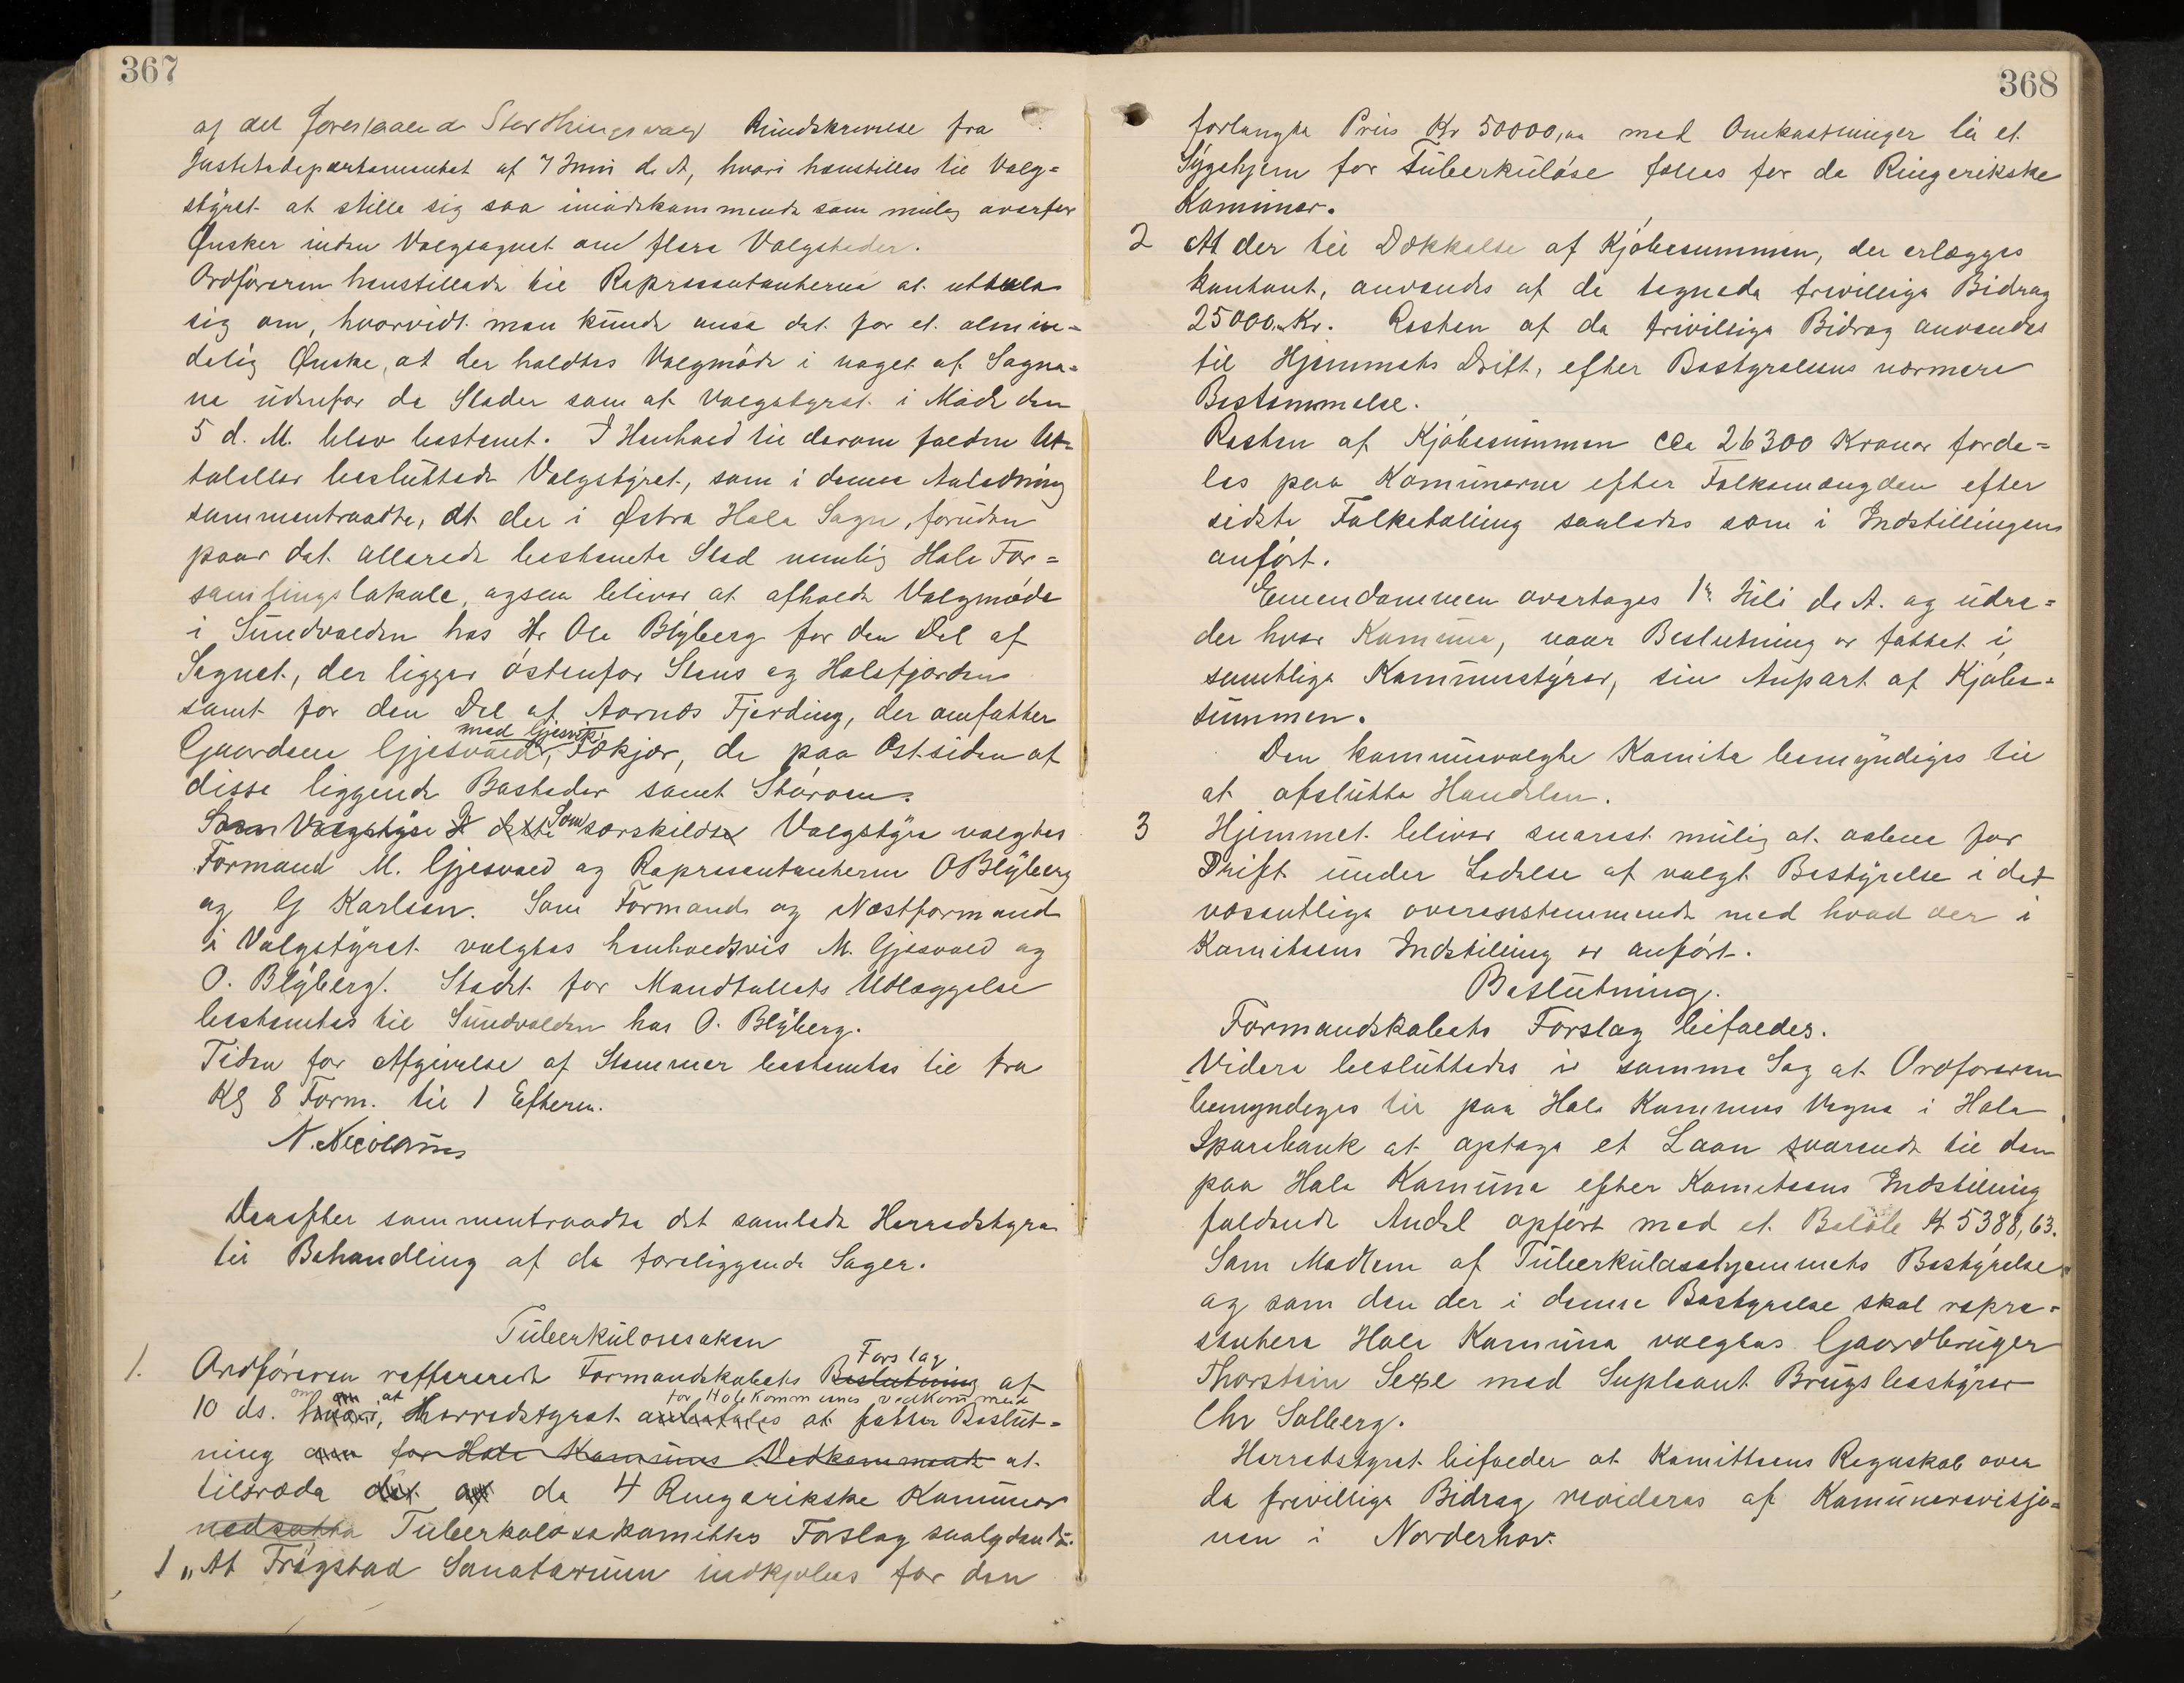 367
af det forestaaende Storthingsvalg Rundskrivelse fra
Justitsdepartementet af 7 Juni d. A, hvori henstilles til Valg=
styret at stille sig saa imødekommende som mulig overfor
Ønsker inden Valgsognet om flere Valgsteder.
Ordføreren henstillede til Repræsentanterne at uttale
sig om, hvorvidt man kunde anse det for et almin=
delig Ønske, at der holdtes Valgmøde i noget af Sogne=
ne udenfor de Steder som af Valgstyret i Møde den
5 d. M. blev bestemt. I Henhold til derom faldne Ut=
talelser besluttede Valgstyret, som i denne Anledning
sammentraadte, at der i Østre Hole Sogn, foruden
paa det allerede bestemte Sted nemlig Hole For=
samlingslokale, ogsaa bliver at afholde Valgmøde
i Sundvolden hos Hr Ole Blyberg for den Del af
Sognet, der ligger østenfor Stens og Holsfjorden
samt for den Del af Aarnæs Fjerding, der omfatter
med Gjesvik
Gaardene Gjesvold, Fækjær, de paa Østsiden af
disse liggende Bosteder samt Storøen.
Som Valgstyre I dette Som særskilde Valgstyre valgtes
Formand M. Gjesvold og Repræsentanterne O Blyberg
og G Karlsen. Som Formand og Næstformand
i Valgstyret valgtes henholdsvis M. Gjesvold og
O. Blyberg. Stedet for Mandtallets Udlæggelse
bestemtes til Sundvolden hos O. Blyberg.
Tiden for Afgivelse af Stemmer bestemtes til fra
Kl 8 Form. til 1 Efterm.
N. Nicolaus
Derefter sammentraadte det samlede Herredstyre
til Behandling af de foreliggende Sager.
Tuberkulosesaken
Forslag
1. Ordføreren reffererede Formandskabets Beslutning af
om at for Hole Kommunes vedkommende
10 ds. hvori, Herredstyret anbefales at fatter Beslut=
ning om for Hole Kommunes Vedkommende at
tilræde det af de 4 Ringerikske Kommuner
nedsatte Tuberkulosekomittes Forslag saalydende:
1 „At Frøgstad Sanatorium indkjøbes for den
368
forlangte Pris Kr 50000,00 med Omkostninger til et
Sygehjem for Tuberkuløse fælles for de Ringerikske
Komuner.
2 At der til Dækkelse af Kjøbesummen, der erlægges
kontant, anvendes af de tegnede frivillige Bidrag
25000,00 Kr. Resten af de frivillige Bidrag anvendes
til Hjemmets Drift, efter Bestyrelsens nærmere
Bestemmelse.
Resten af Kjøbesummen cca 26300 Kroner forde=
les paa Komunerne efter Folkemængden efter
sidste Folketælling saaledes som i Indstillingens
anført.
Eiendommen overtages 1ste Juli d. A. og udre=
der hver Komune, naar Beslutning er fattet i
samtlige Kommunestyrer, sin Anpart af Kjøbe=
summen.
Den kommunevalgte Komite bemyndiges til
at afslutte Handelen.
3 Hjemmet bliver snarest mulig at aabne for
Drift under Ledelse af valgt Bestyrelse i det
væsentlige overensstemmende med hvad der i
Komiteens Indstilling er anført.
Beslutning.
Formandskabets Forslag bifaldes.
Videre besluttedes i samme Sag at Ordføreren
bemyndiges til paa Hole Kommunes Vegne i Hole
Sparebank at optage et Laan svarende til den
paa Hole Komune efter Komiteens Indstilling
faldende Andel opført med et Beløb Kr 5388,63.
Som Medlem af Tuberkulosehjemmets Bestyrelse
og som den der i denne Bestyrelse skal repræ=
sentere Hole Komune valgtes Gaardbruger
Thorstein Sexe med Supleant Brugsbestyrer
Chr Solberg.
Herredstyret bifalder at Komitteens Regnskab over
de frivillige Bidrag revideres af Komunerevisjo=
nen i Norderhov.